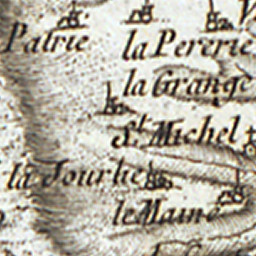 Patrie
la Pererie
la Grange
St. Michel
la Tourlie
le Maine